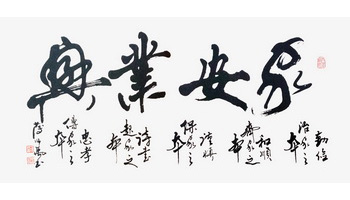 家安業興
勤儉
治家之
本
和順
齊家之
本
謹慎
保家之
本
詩書
起家之
本
忠孝
傳家之
本